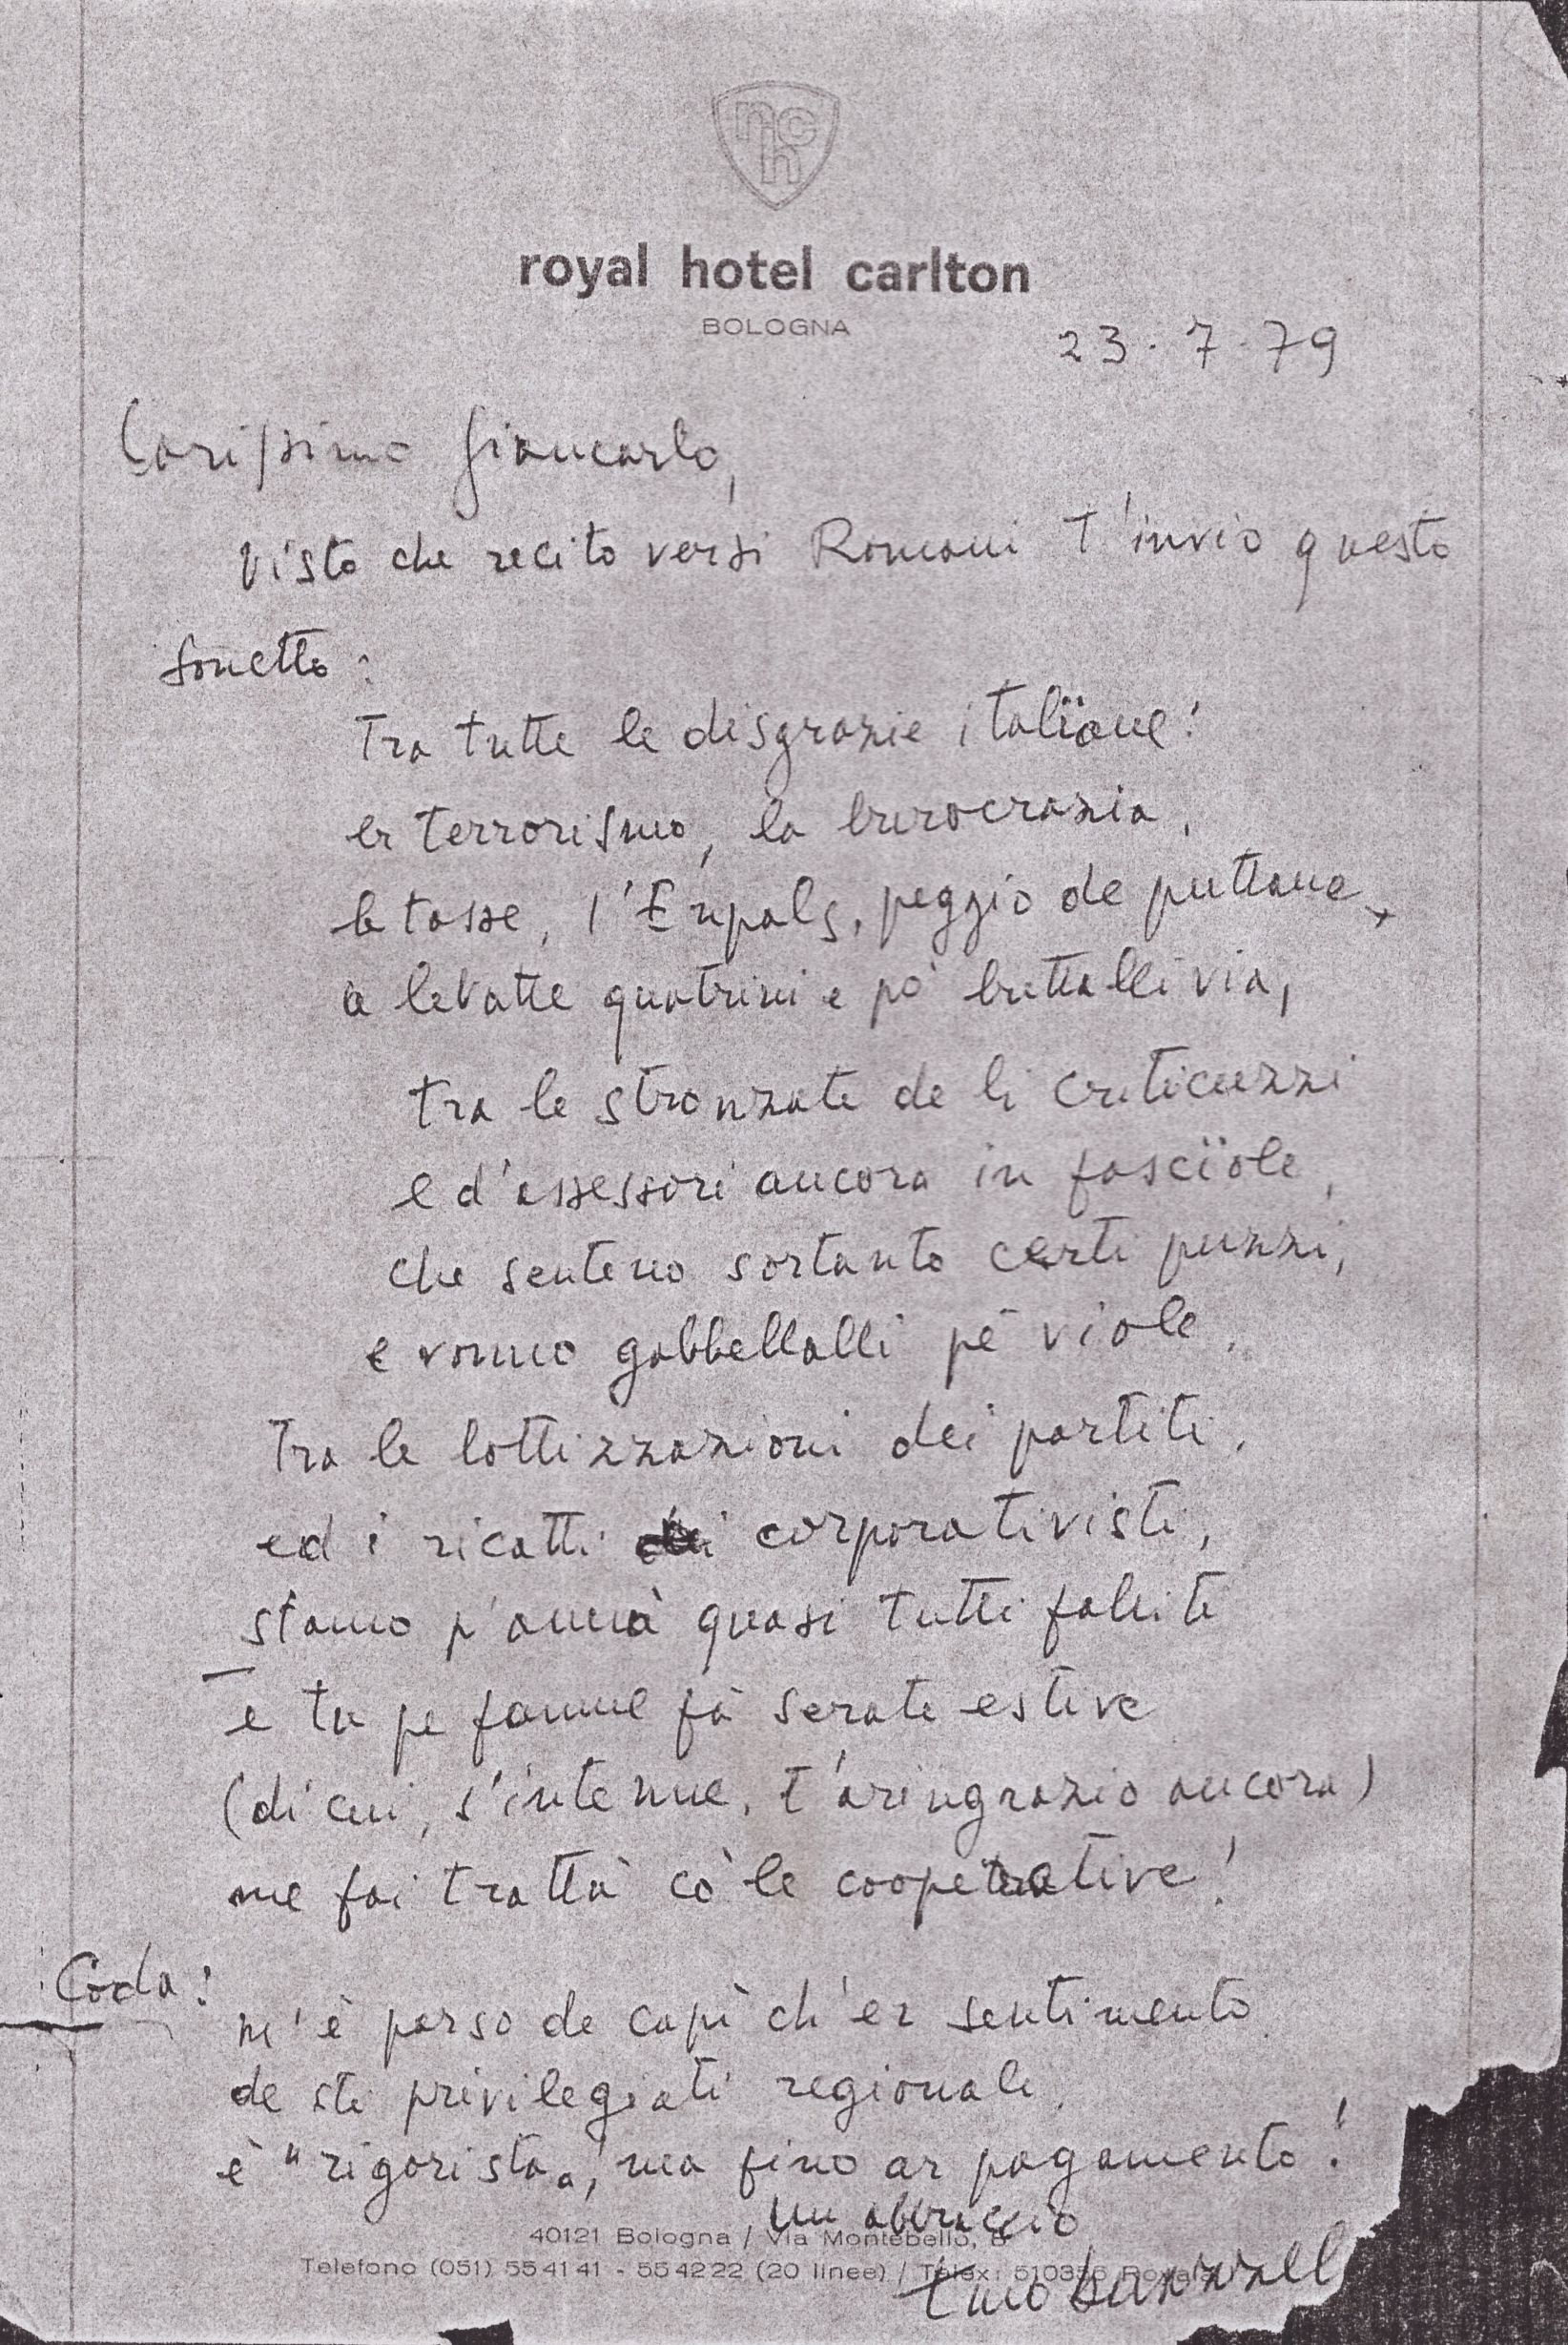 nch
royal hotel carlton
BOLOGNA
23.7.79
Carissimo Giancarlo,
Visto che recito versi Romani t'invio questo
sonetto:
Tra tutte le disgrazie italïane:
er terrorismo, la burocrazia,
le tasse, l'Enpals, peggio de puttane,
a levatte quatrini e pò buttalli via,
tra le stronzate de li criticuzzi
e d'assessori ancora in fasciole,
che senteno sortanto certi puzzi,
e vonno gabbellalli pé viole.
Tra le lottizzazioni dei partiti,
ed i ricatti corporativisti,
stamo p'annà quasi tutti falliti
e tu pe famme fà serate estive
(di cui, s'intenne, t'aringrazio ancora)
me fai trattà cò le cooperative!
Coda:
m'è parso de capì ch'er sentimento
de sti privilegiati regionali,
è "rigorista", ma fino ar pagamento!
Un abbraccio
40121 Bologna / Via Montebello, 8
Telefono (051) 554141 - 554222 (20 linee) / Telex: 510356